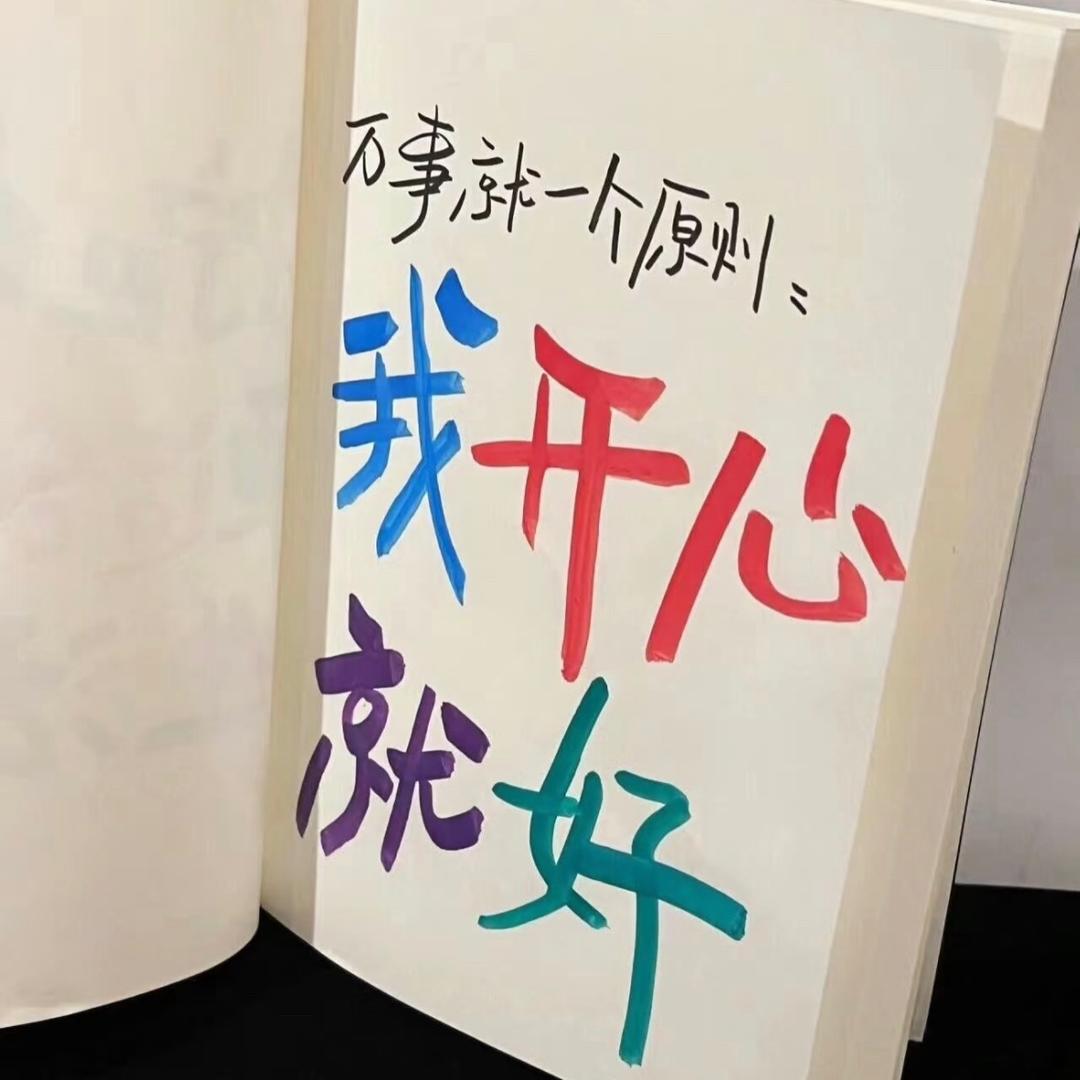 万事就一个原则：
我开心
就好